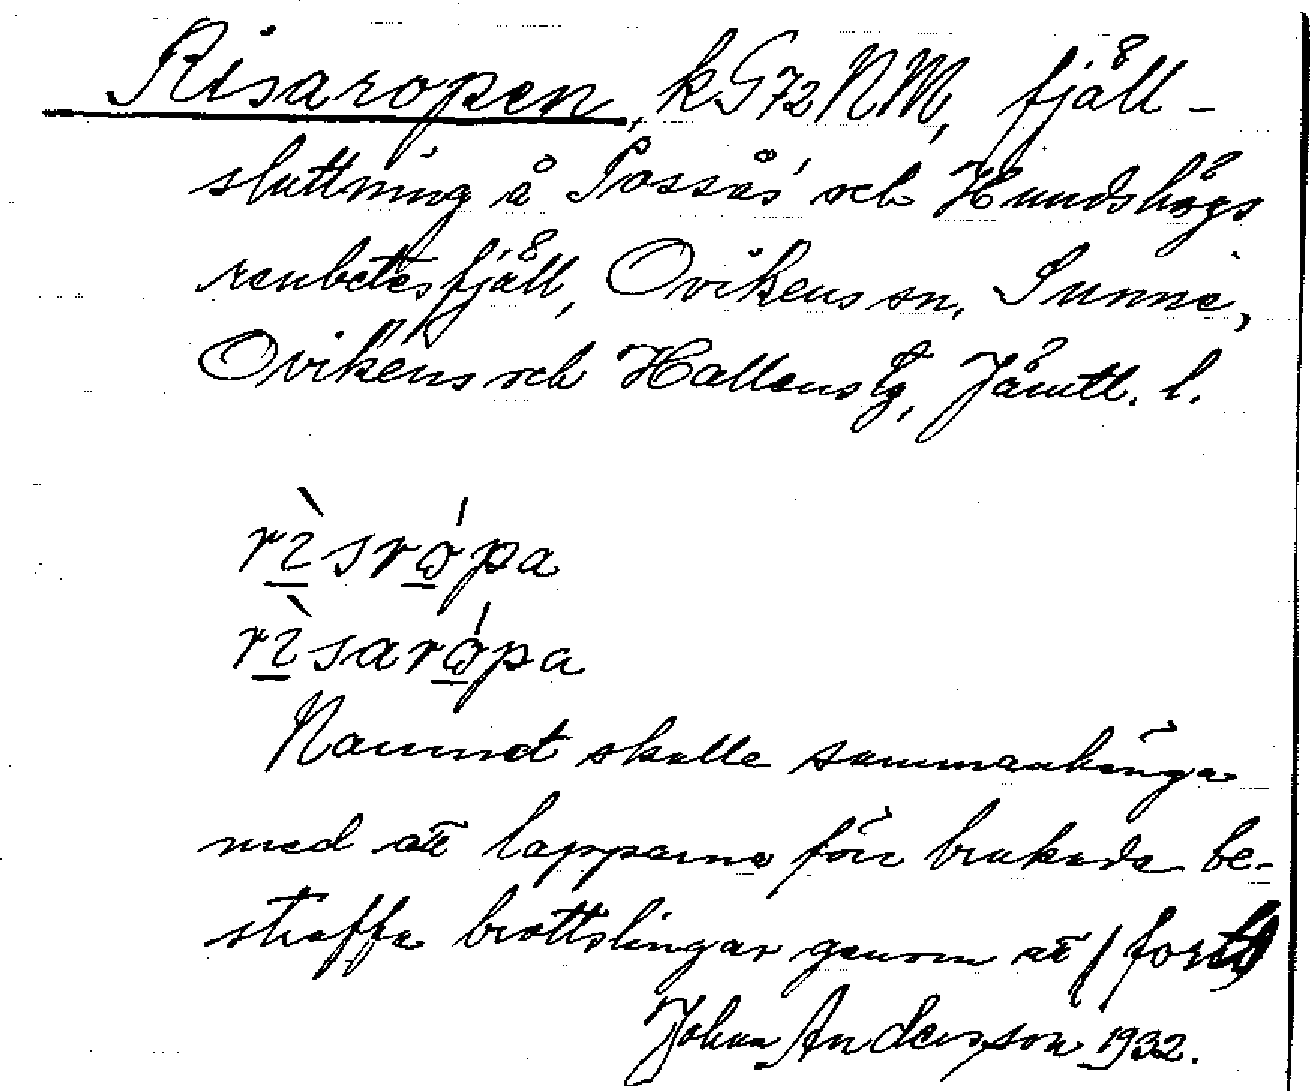 Risaropen, kG72NM, fjäll-
sluttning å Tossås' och Hundshögs
renbetesfjäll, Ovikens sn, Sunne,
Ovikens och Hallens tg, Jämtl. l.
rìsrópa
rìsarópa
Namnet skulle sammanhänga
med att lapparna förr brukade be-
straffa brottslingar genom att / forts)
Johan Anderson 1932.